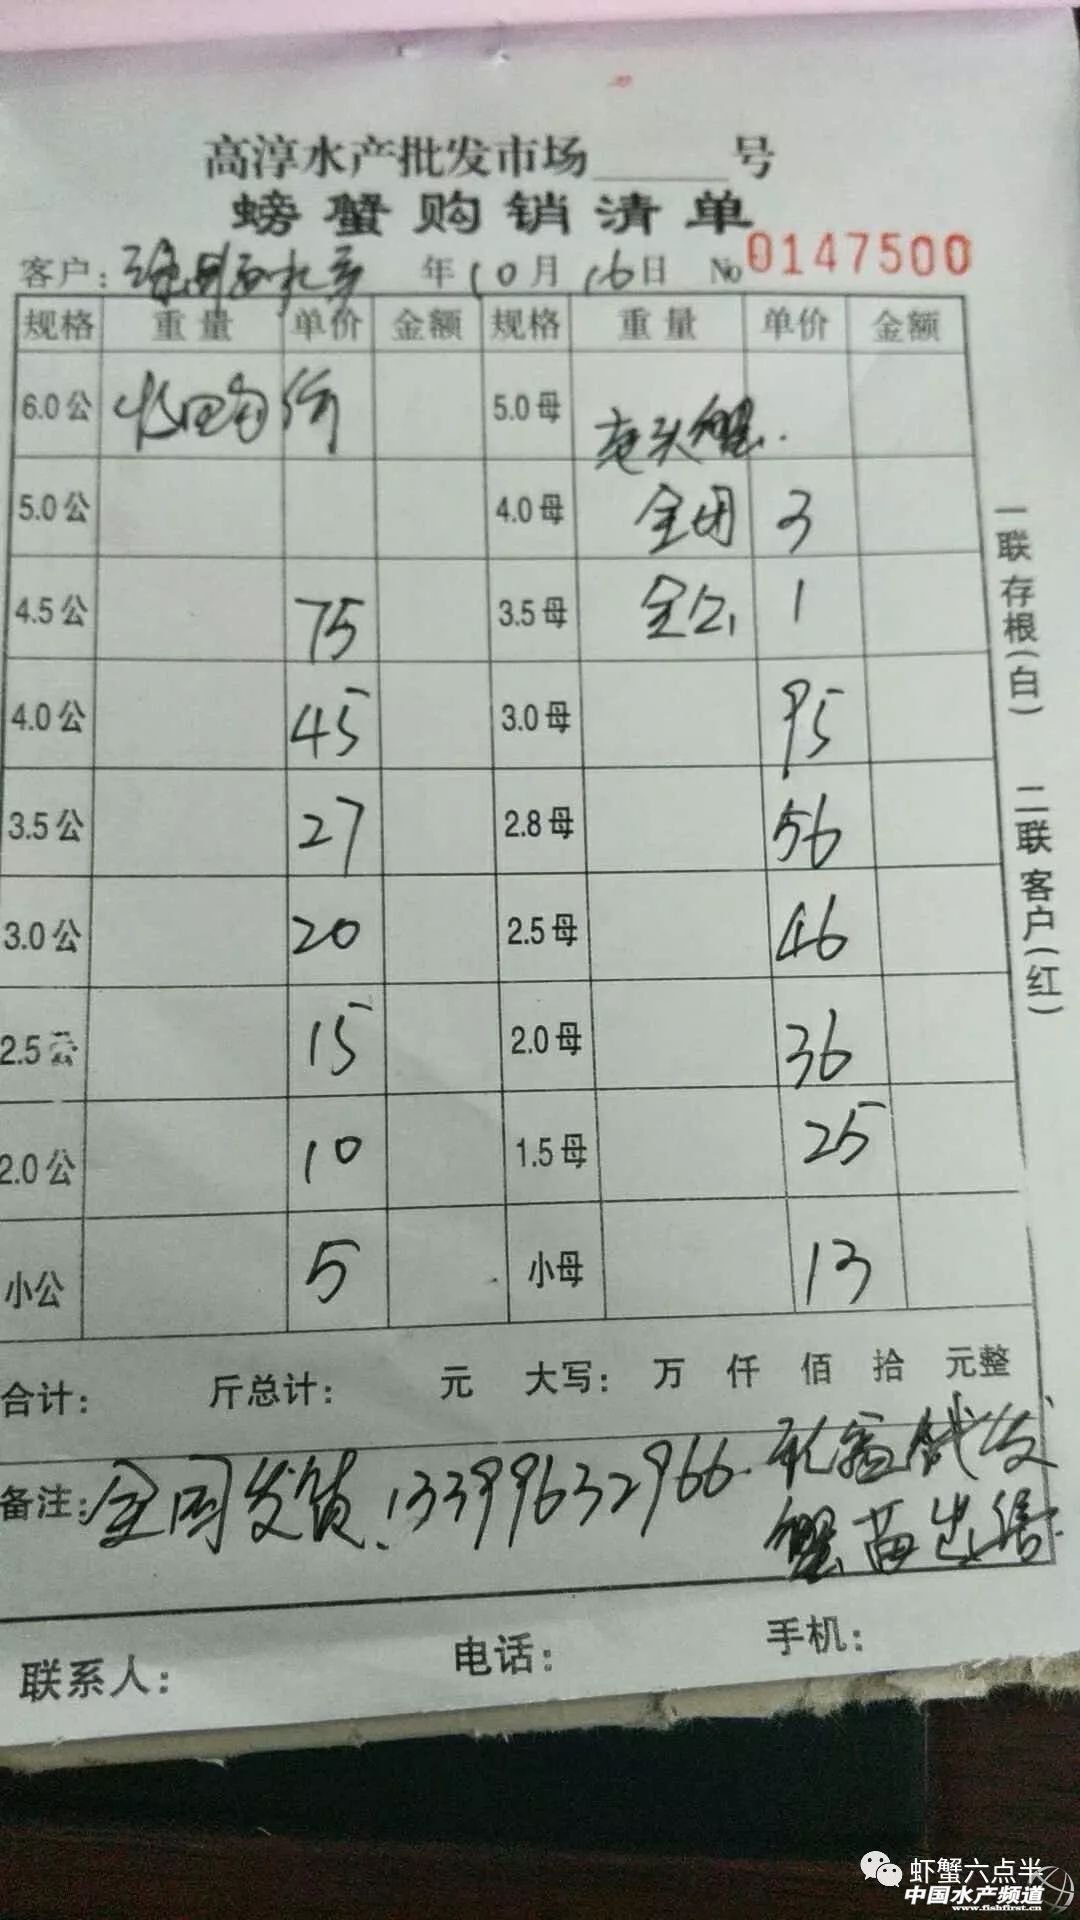 高淳水产批发市场______号
螃蟹购销清单
客户: 年10月16日 No 0147500
规格 重量 单价 金额 规格 重量 单价 金额
6.0公 价 5.0母 蟹
5.0公 4.0母 全团 3
4.5公 75 3.5母 全公 1
4.0公 45 3.0母 95
3.5公 27 2.8母 56
3.0公 20 2.5母 46
2.5公 15 2.0母 36
2.0公 10 1.5母 25
小公 5 小母 13
合计: 斤总计: 元 大写: 万 仟 佰 拾 元整
备注: 全国发货.13399632966.
蟹苗出售
联系人: 电话: 手机:
一联存根(白) 二联客户(红)
虾蟹六点半
中国水产频道
www.fishfirst.cn